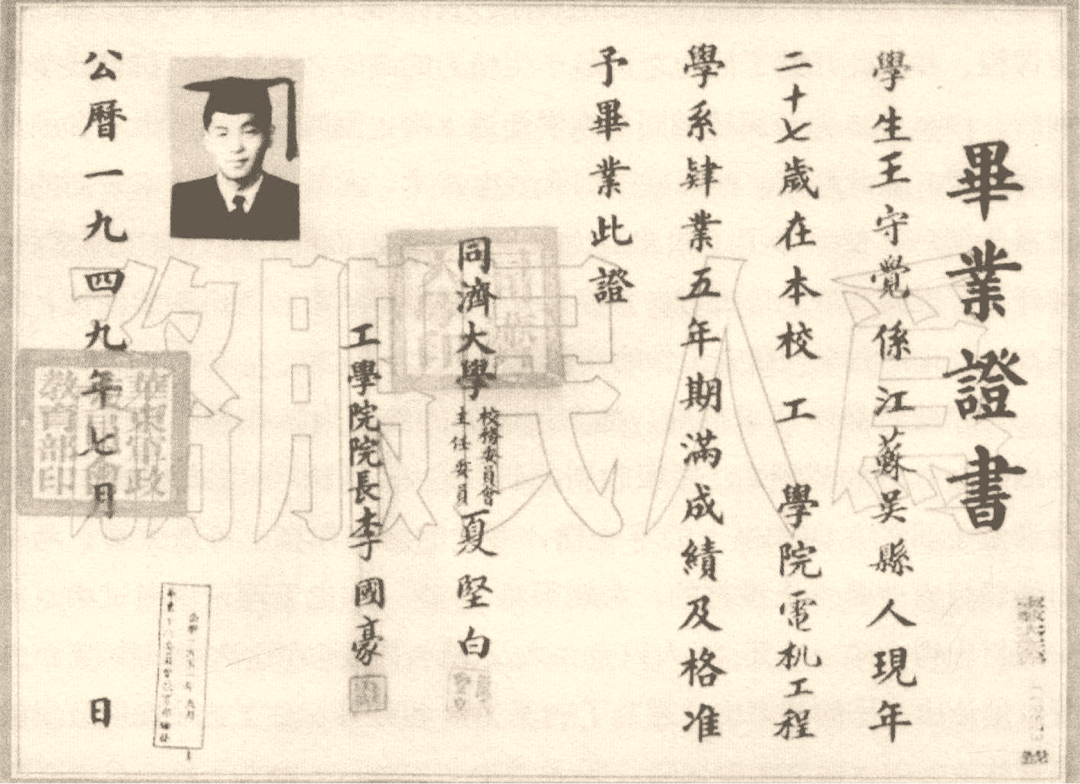 畢業證書
學生王守覺係江蘇吴縣人現年
二十七歲在本校 工 學院電机工程
學系肄業五年期滿成績及格准
予畢業此證
同濟大學 校務委員會
主任委員 夏堅白
工學院院長李國豪
公曆一九四九年七月 日
為人民服務
華東軍政
教育部印